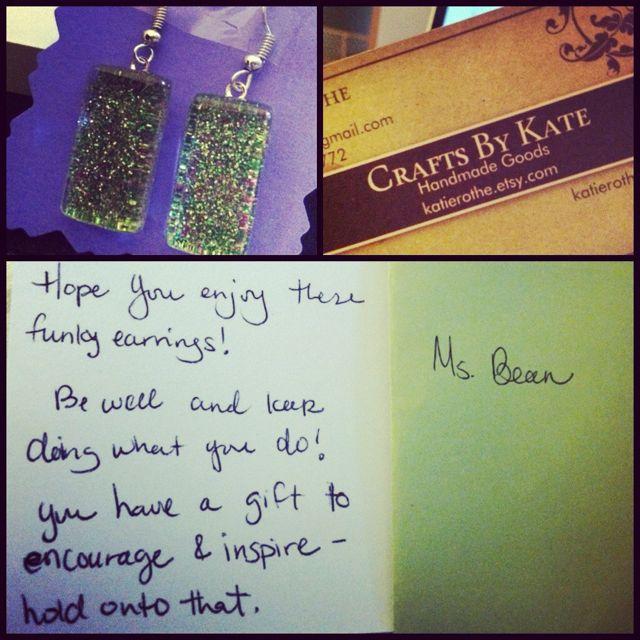 HE
gmail.com
772
CRAFTS BY KATE
Handmade Goods
katierothe.etsy.com
katieroth
Hope you enjoy these
funky earrings!
Be well and keep
doing what you do!
you have a gift to
encourage & inspire -
hold onto that.
Ms. Bean